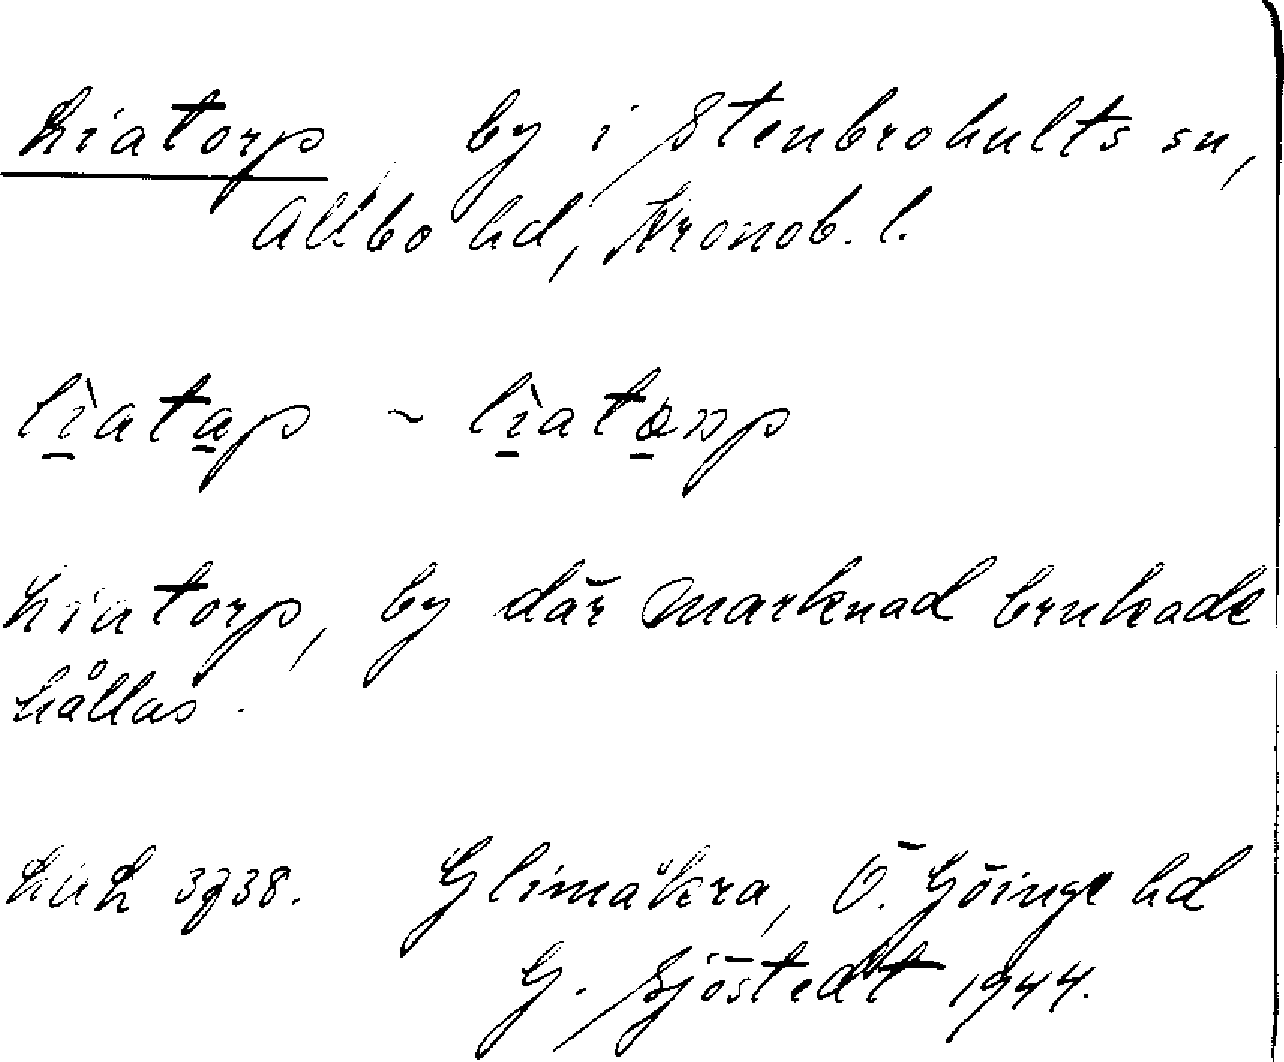 Liatorp by i Stenbrohults sn,
Allbo hd, Kronob. l.
lìatap ~ lìatorp
Liatorp, by där marknad brukade
hållas.
LUL 3738. Glimåkra, Ö. Göinge hd
G. Sjöstedt 1944.